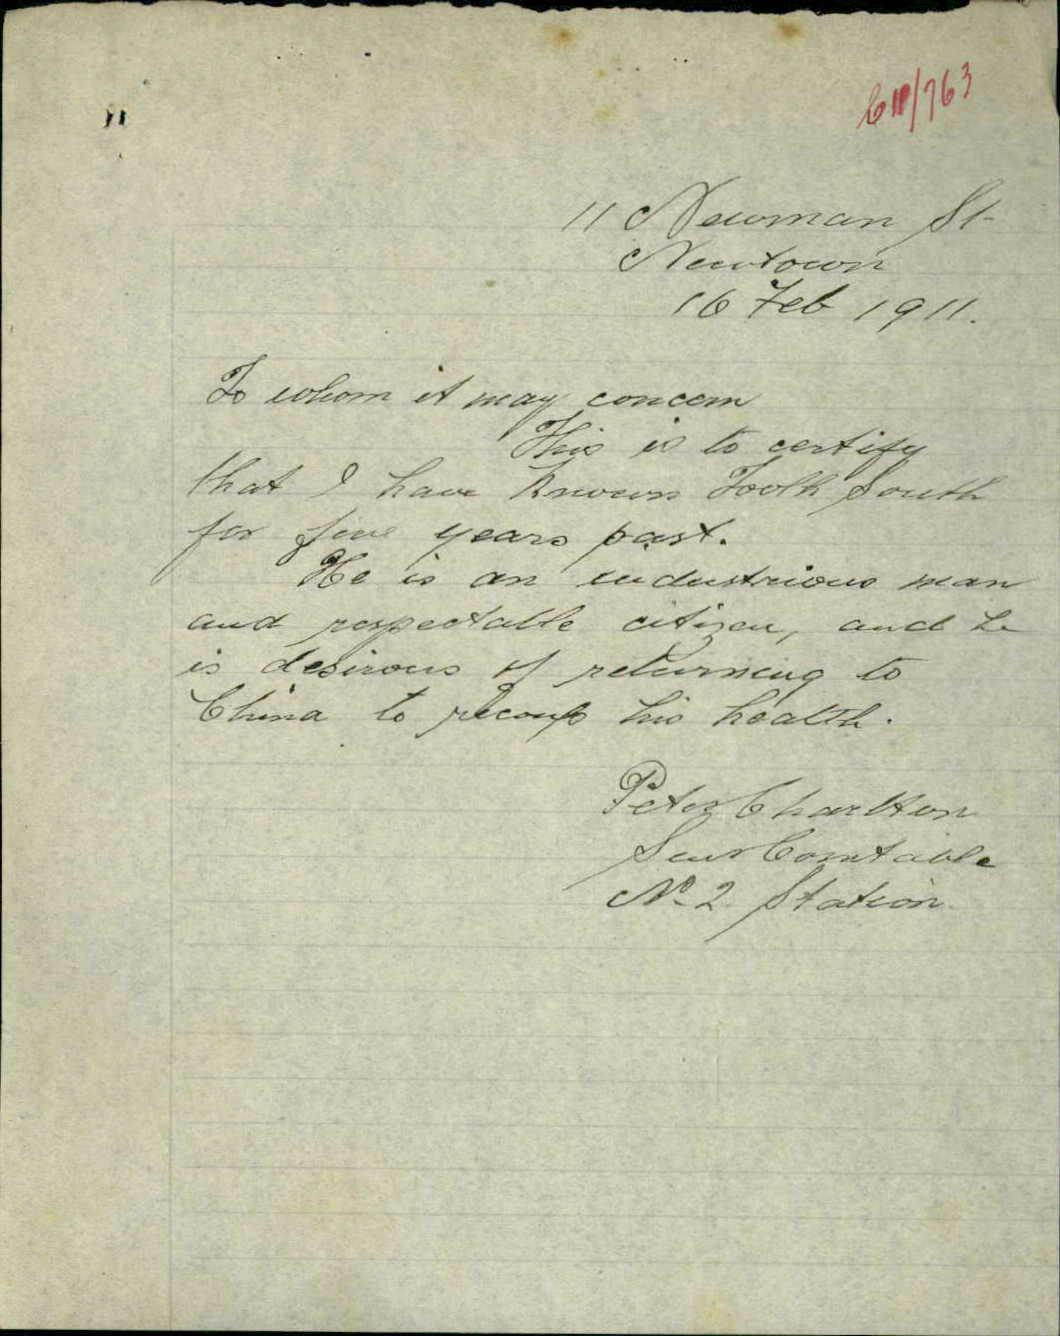 C11/763
11 Newman St
Newtown
16 Feb 1911.
To whom it may concern
This is to certify
that I have known Tooth South
for five years past.
He is an industrious man
and respectable citizen, and he
is desirous of returning to
China to recoup his health.
Peter Charlton
Senr Constable
No. 2 Station